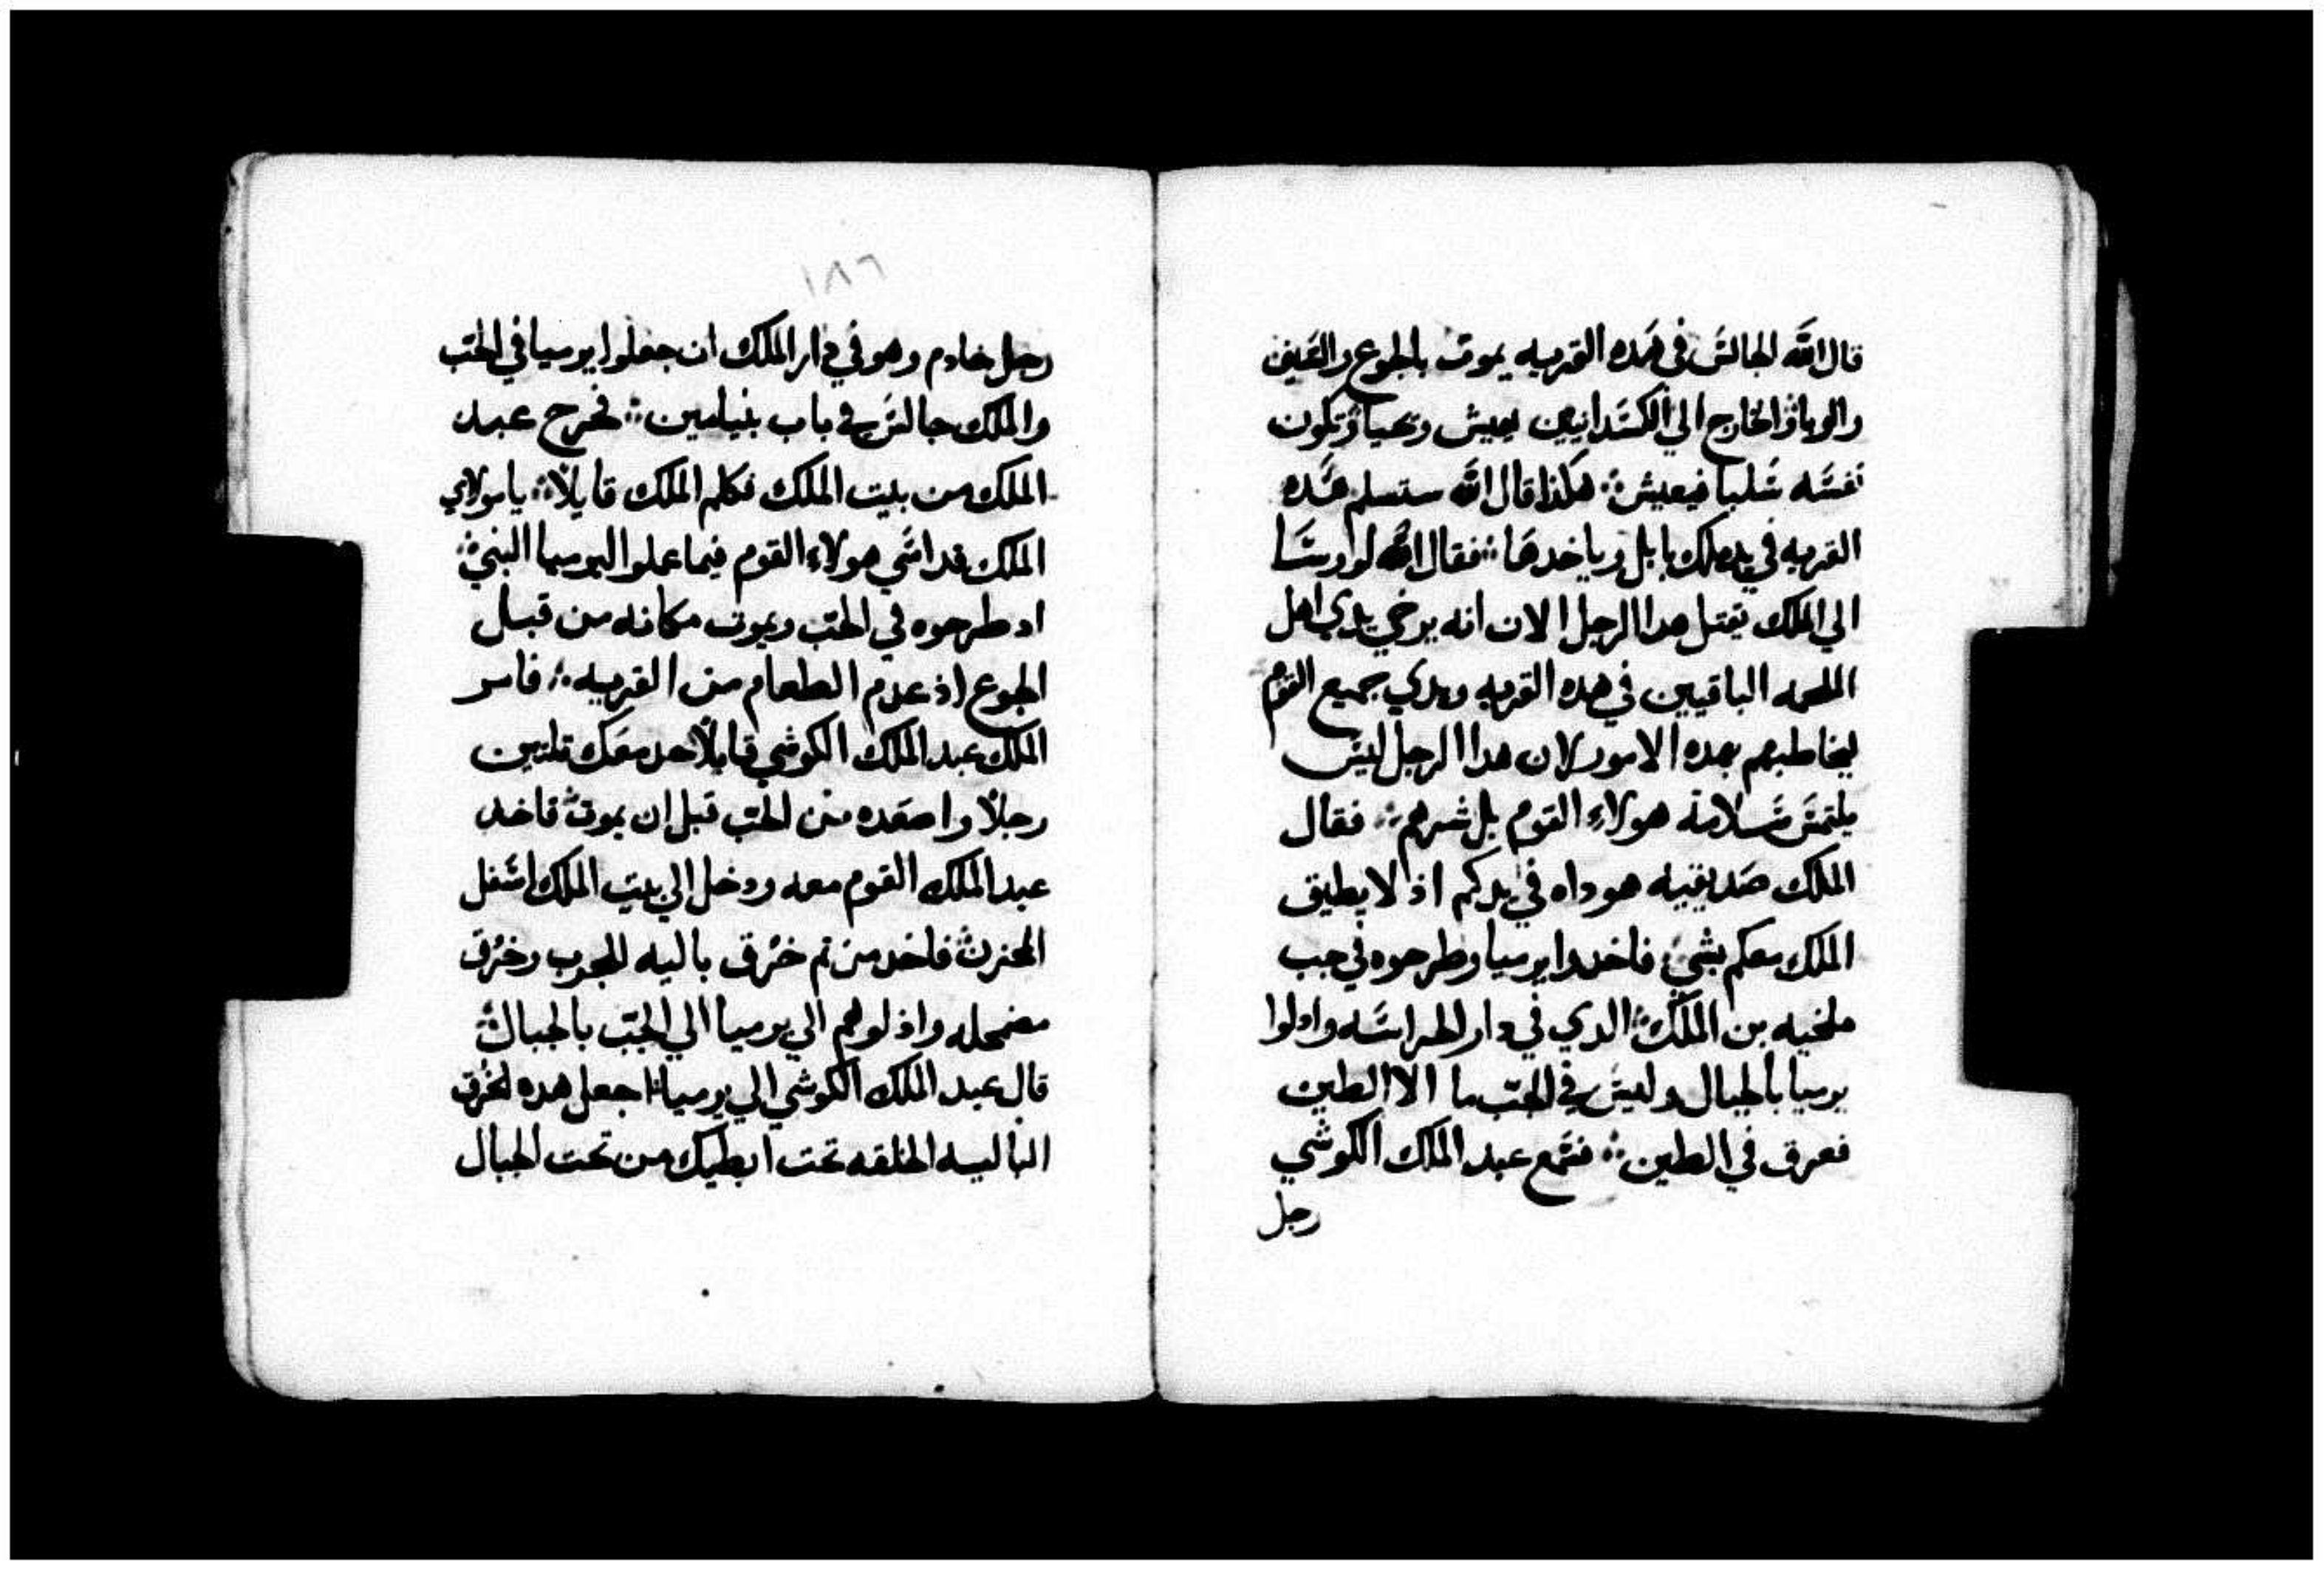 قال الله الجالس في هذه القريه يموت بالجوع والسيف
والوبا والخارج الي الكسدانيين يعيش ويحيا وتكون
نفسه سلبا فيعيش هكذا قال الله ستسلم هده
القريه في يد ملك بابل وياخدها فقال الله لو اورسا
الي الملك يقتل هدا الرجل الان انه يرخي يدي اهل
الملحمه الباقيين في هده القريه ويدي جميع القوم
ليخاطبهم بهده الامور لان هدا الرجل ليس
يلتمس سلامة هولاء القوم بل شرهم فقال
الملك صديقيه هوداه في يدكم اذ لا يطيق
الملك معكم بشي فاخدوا يرميا وطرحوه في جب
ملخيه بن الملك الدي في دار الحراسه وادلوا
يرميا بالحبال وليس في الجب ما الا الطين
فعرق في الطين فسمع عبد الملك الكوشي
رجل
٢٨١
رجل خادم وهو في دار الملك ان جعلوا يرميا في الجب
والملك جالس في باب بنيامين فخرج عبد
الملك من بيت الملك فكلم الملك قايلا يا مولاي
الملك قد اسي هولاء القوم فيما عملوا اليوميا النبي
اد طرحوه في الجب ويموت مكانه من قبل
الجوع اذ عدم الطعام من القريه فامر
الملك عبد الملك الكوشي قايلا خد معك تلتين
رجلا واصعده من الجب قبل ان يموت فاخد
عبد الملك القوم معه ودخل الي بيت الملك اسفل
المخزن فاخد من تم خرق باليه للجدب وخرق
مضمحله وادلوهم الي يرميا الي الجب بالحبال
قال عبد الملك الكوشي الي يرميا اجعل هده الخرق
الباليه الخلقه تحت ابطيك من تحت الحبال